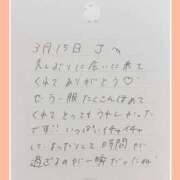 3月15日 Jへ
久しぶりに会いに来て
くれてありがとう♡
セーラー服たくさんほめて
くれてとってもうれしかった
です!! いっぱいイチャイチャ
して まったりして 時間が
過ぎるのが一瞬だったね